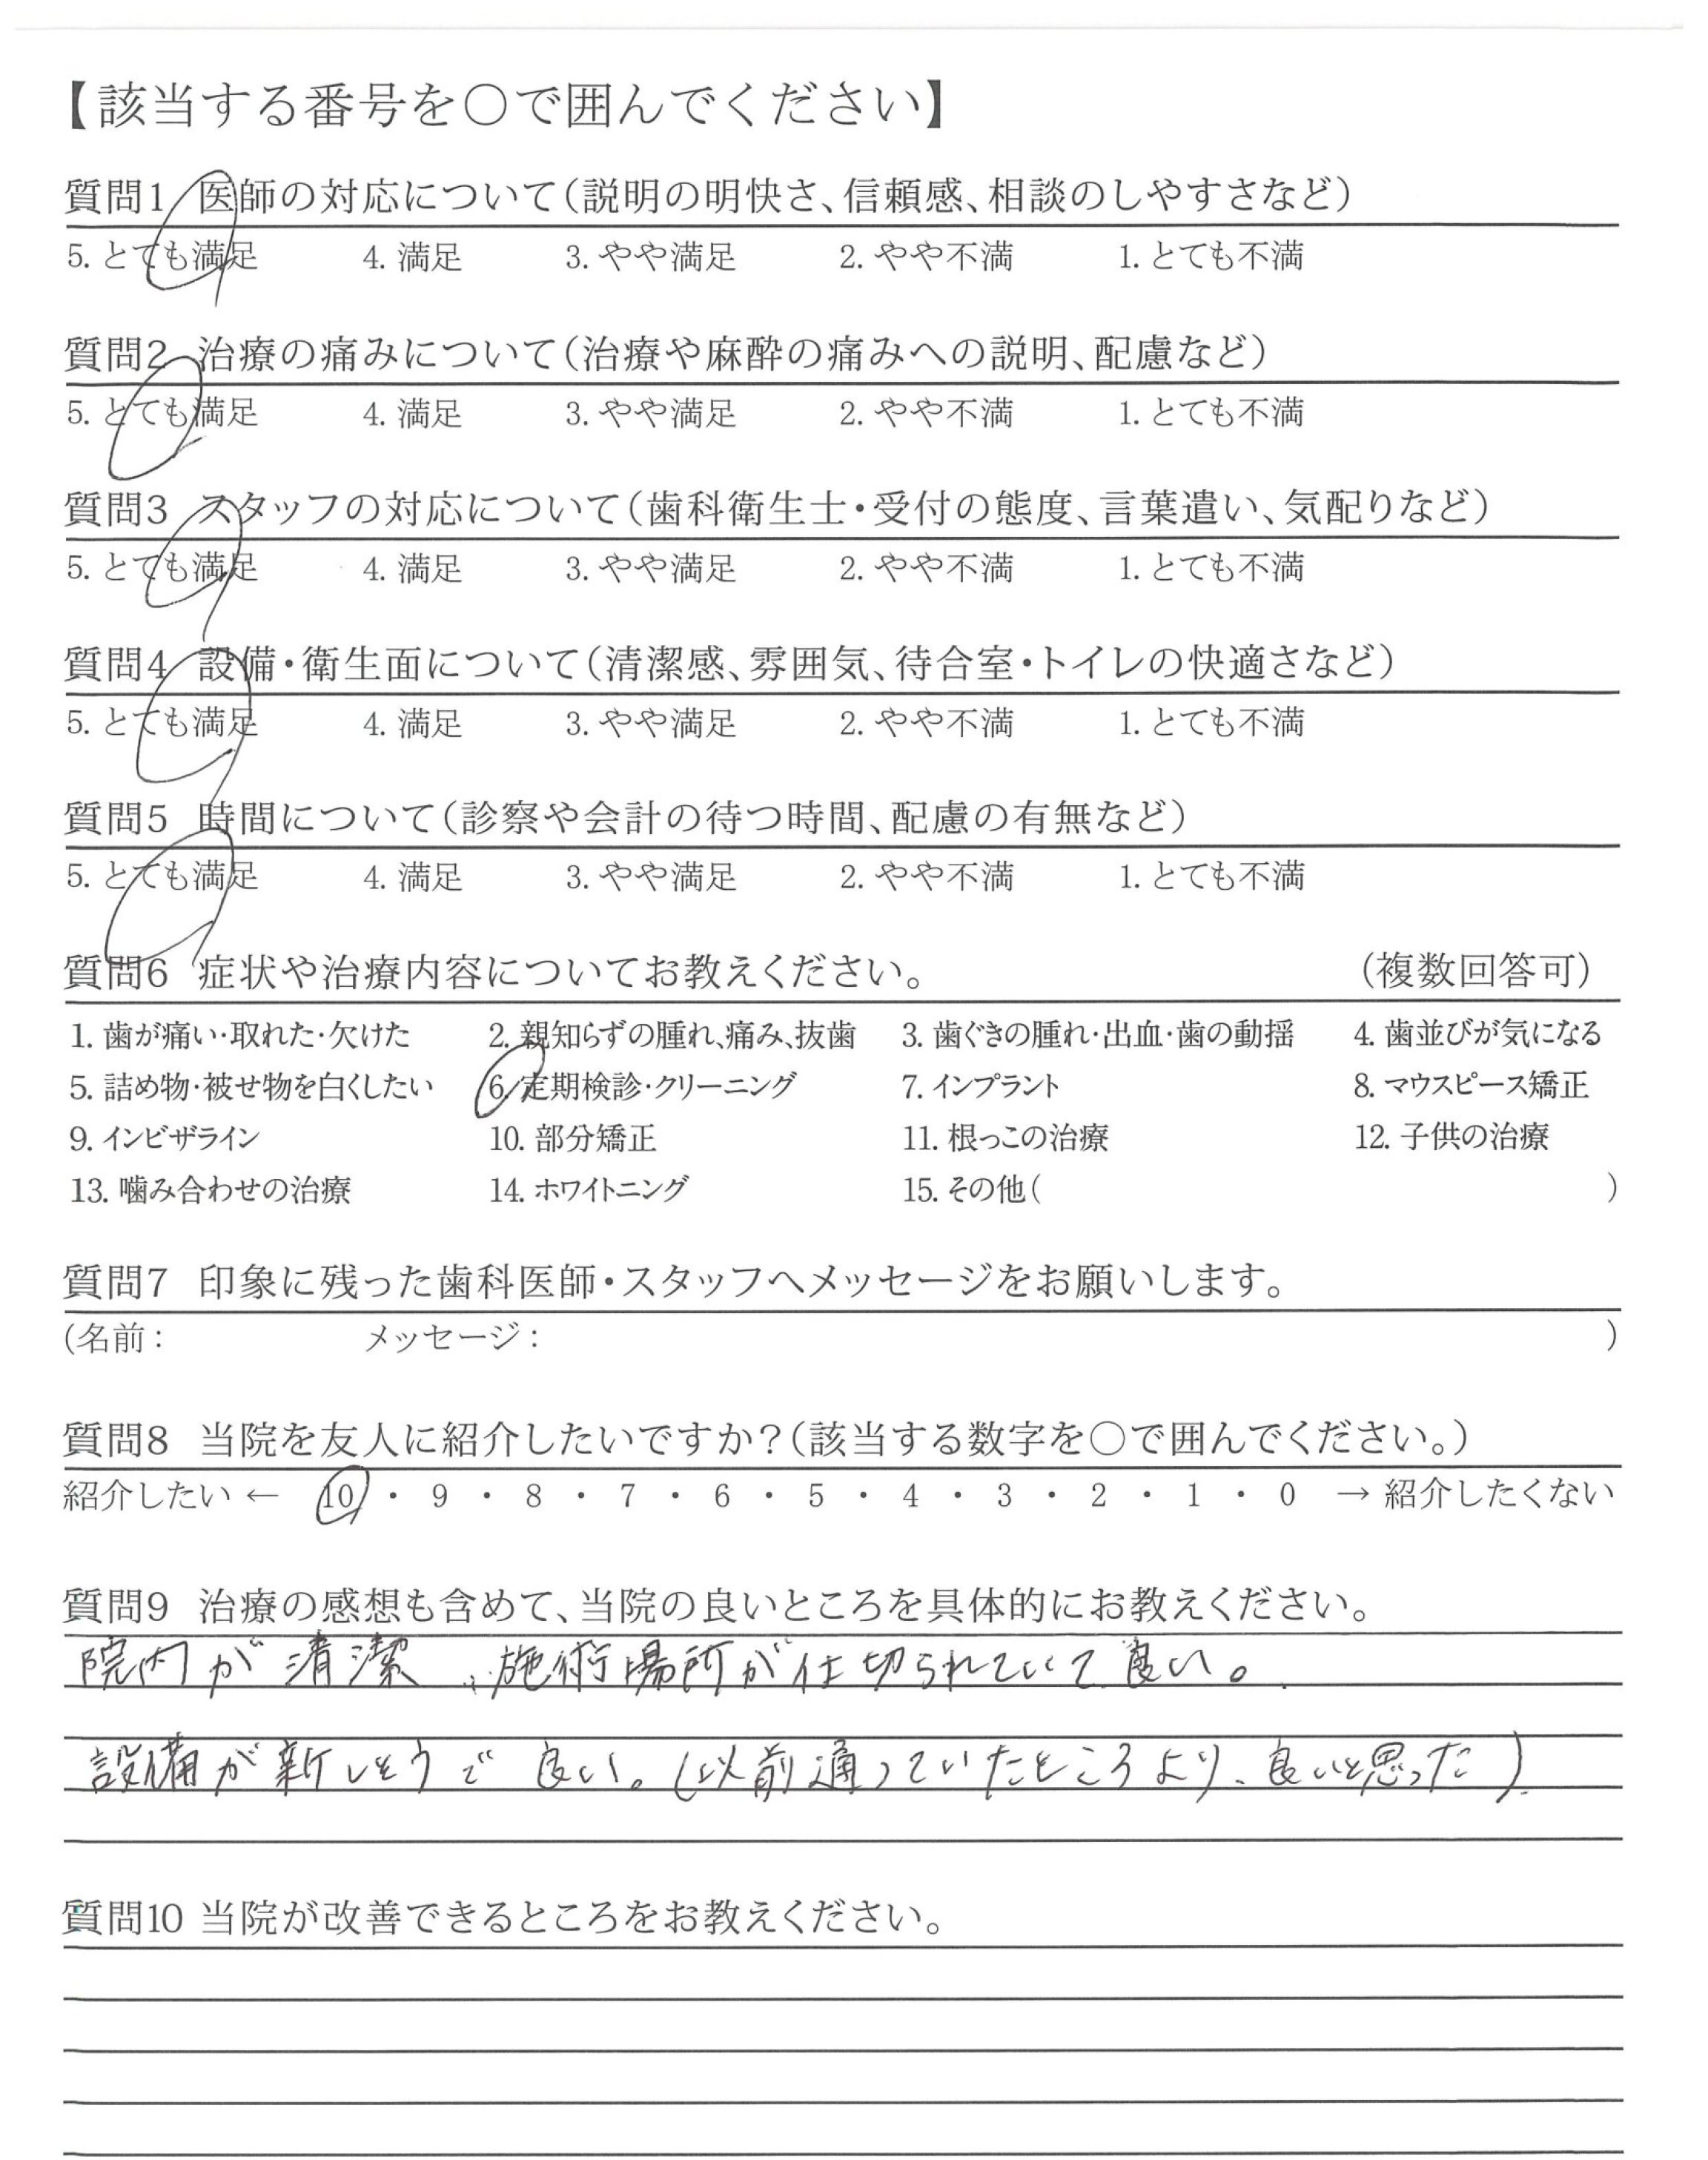 【該当する番号を〇で囲んでください】
質問1 医師の対応について（説明の明快さ、信頼感、相談のしやすさなど）
5. とても満足 4. 満足 3. やや満足 2. やや不満 1. とても不満
質問2 治療の痛みについて（治療や麻酔の痛みへの説明、配慮など）
5. とても満足 4. 満足 3. やや満足 2. やや不満 1. とても不満
質問3 スタッフの対応について（歯科衛生士・受付の態度、言葉遣い、気配りなど）
5. とても満足 4. 満足 3. やや満足 2. やや不満 1. とても不満
質問4 設備・衛生面について（清潔感、雰囲気、待合室・トイレの快適さなど）
5. とても満足 4. 満足 3. やや満足 2. やや不満 1. とても不満
質問5 時間について（診察や会計の待つ時間、配慮の有無など）
5. とても満足 4. 満足 3. やや満足 2. やや不満 1. とても不満
質問6 症状や治療内容についてお教えください。 （複数回答可）
1. 歯が痛い・取れた・欠けた 2. 親知らずの腫れ、痛み、抜歯 3. 歯ぐきの腫れ・出血・歯の動揺 4. 歯並びが気になる
5. 詰め物・被せ物を白くしたい 6. 定期検診・クリーニング 7. インプラント 8. マウスピース矯正
9. インビザライン 10. 部分矯正 11. 根っこの治療 12. 子供の治療
13. 噛み合わせの治療 14. ホワイトニング 15. その他（ ）
質問7 印象に残った歯科医師・スタッフへメッセージをお願いします。
（名前： メッセージ： ）
質問8 当院を友人に紹介したいですか？（該当する数字を〇で囲んでください。）
紹介したい ← 10 ・ 9 ・ 8 ・ 7 ・ 6 ・ 5 ・ 4 ・ 3 ・ 2 ・ 1 ・ 0 → 紹介したくない
質問9 治療の感想も含めて、当院の良いところを具体的にお教えください。
院内が清潔、施術場所が仕切られていて良い。
設備が新しそうで良い。（以前通っていたところより、良いと思った）
質問10 当院が改善できるところをお教えください。